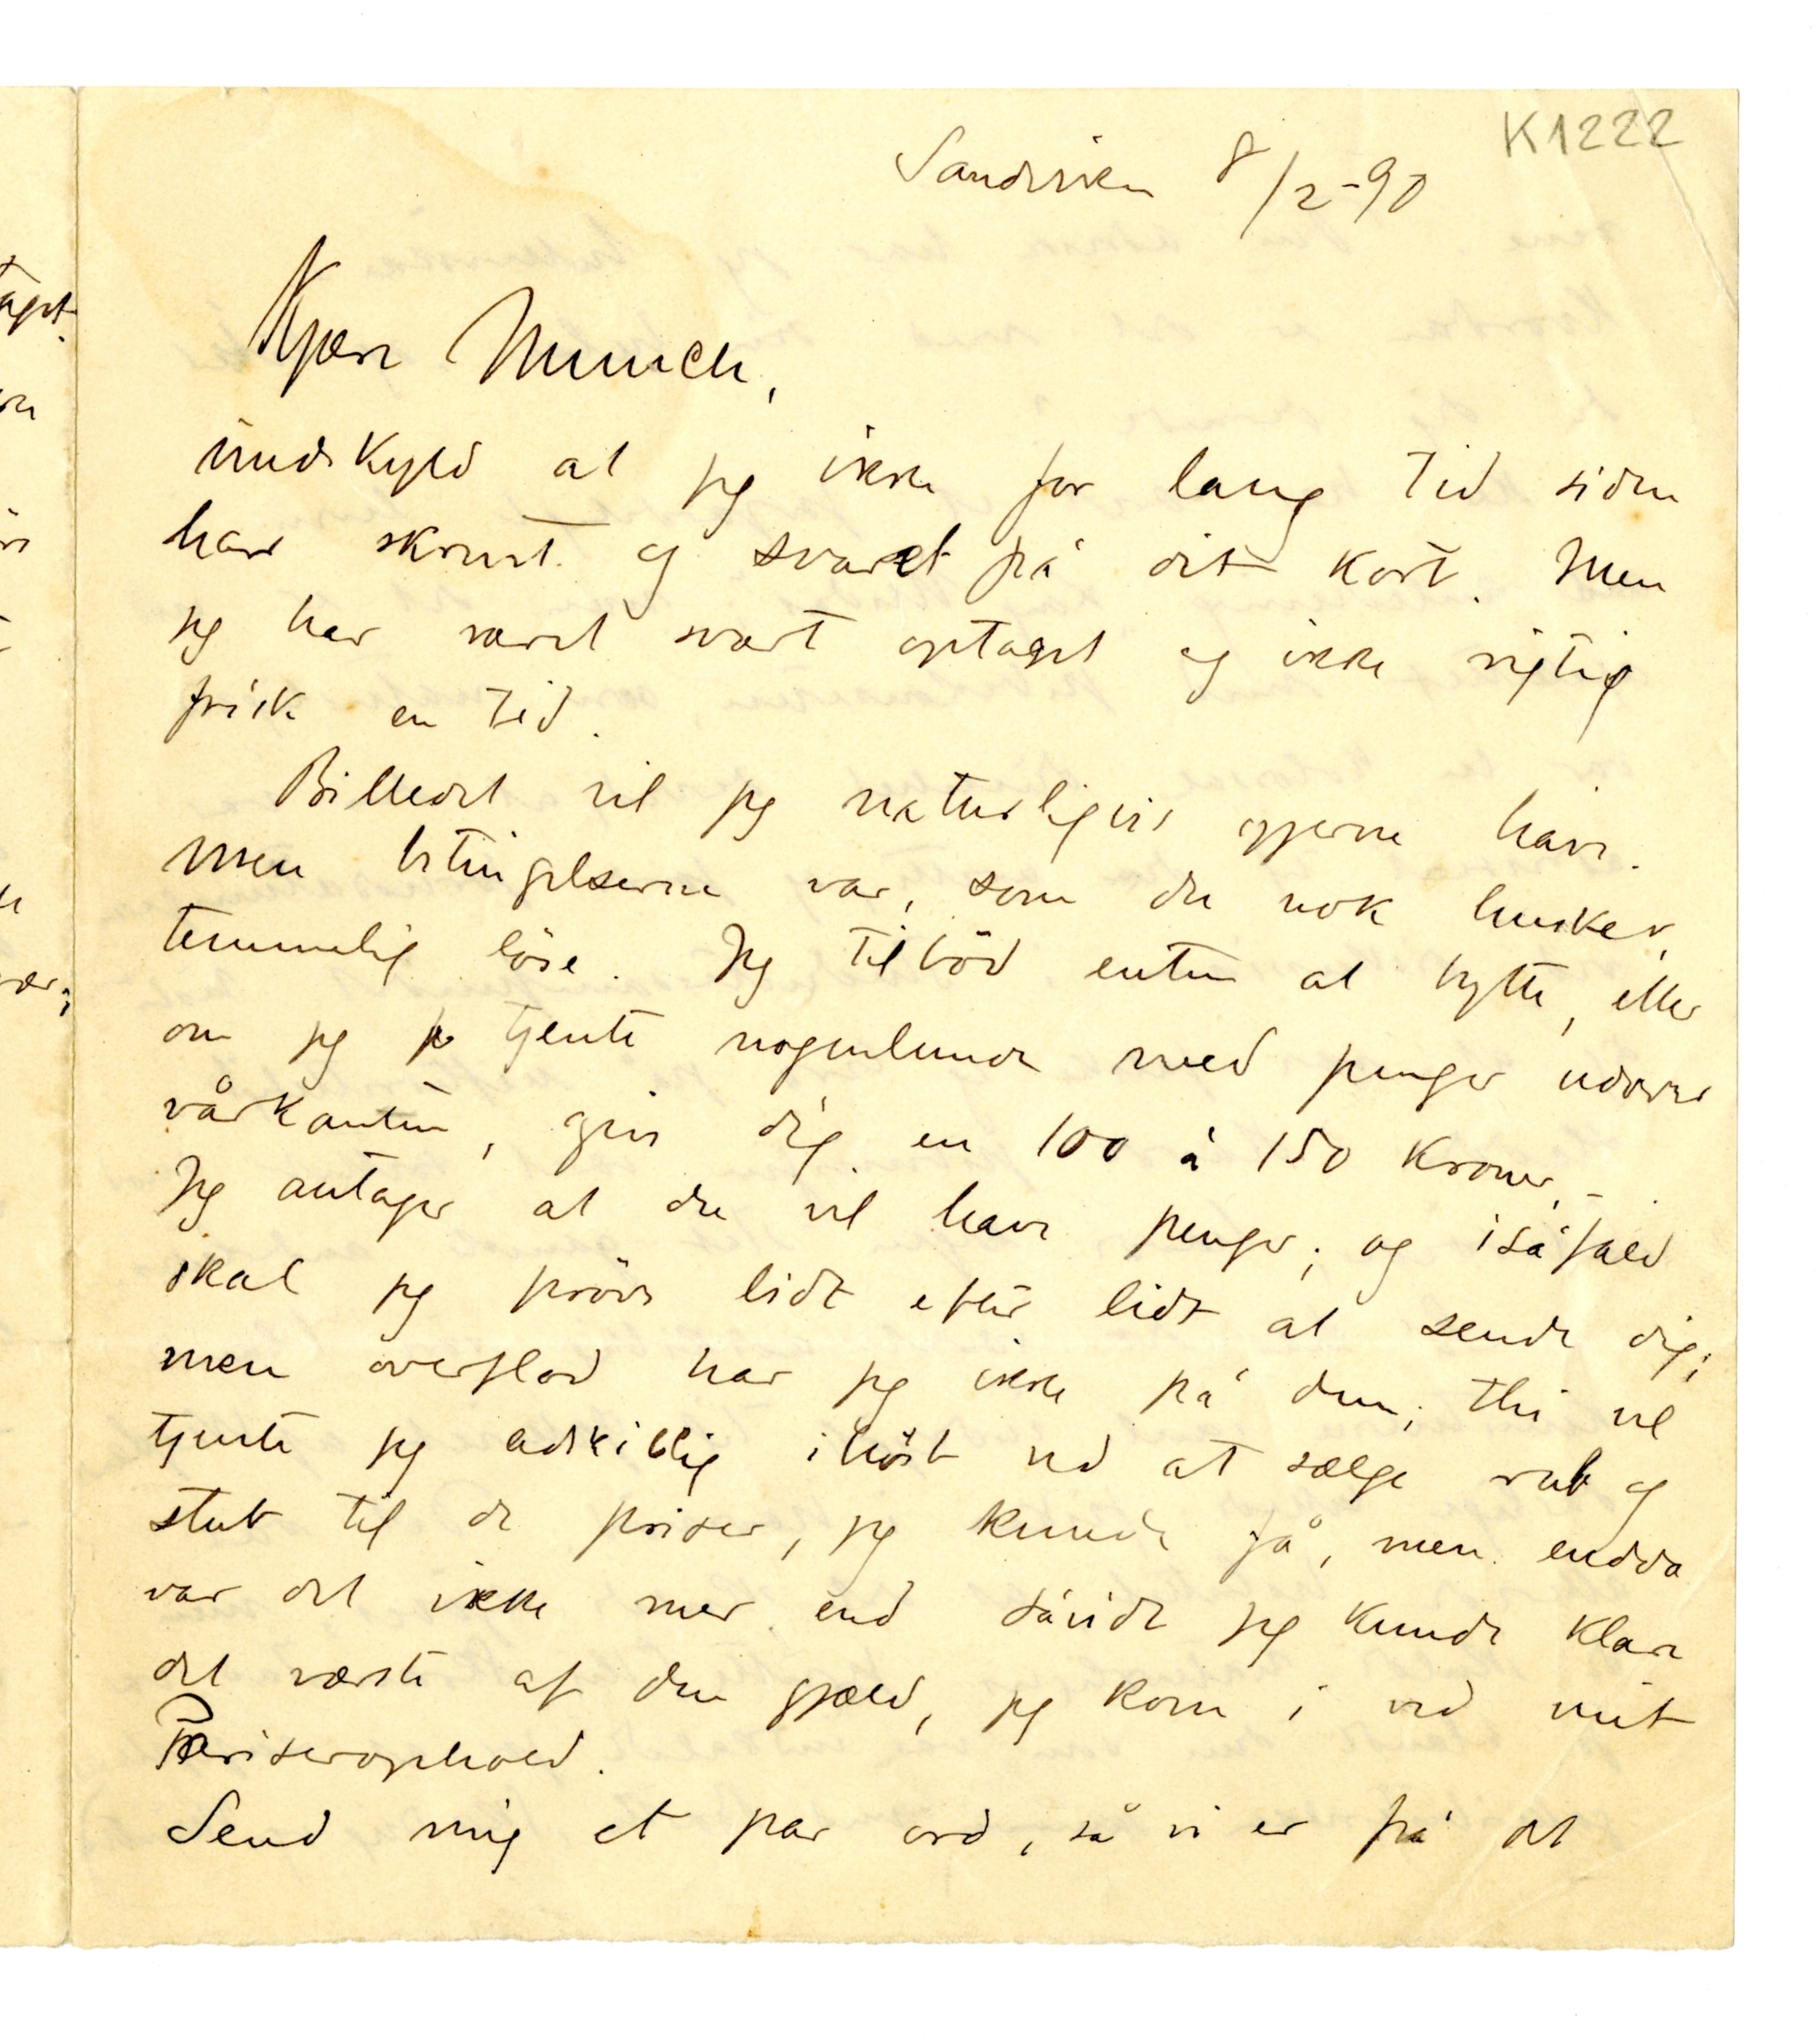 K1222
Sandviken 8/2-90
Kjære Munch,
undskyld at jeg ikke for lang tid siden
have skrevet og svaret på dit kort. Men
jeg har været svært optaget og ikke rigtig
frisk en tid.
Billedet vil jeg naturligvis gjerne have.
Men betingelserne var, som du nok husker,
temmelig löse. Jeg tilböd enten at bytte, eller
om jeg tjente nogenlunde med penger udover
vårkanten, give dig en 100 à 150 kroner,-
Jeg antager at du vil have penger; og isåfald
skal jeg pröve lidt efter lidt at sende dig;
men overflod har jeg ikke på dem; thi vel
tjente jeg adskillig ihöst ved at sælge rub og
stub til de priser, jeg kunde få, men endda
var det ikke mer end såvidt jeg kunde klare
det værste af den gjæld, jeg kom i ved mit
Pariserophold.
Send mig et par ord, så vi er på det